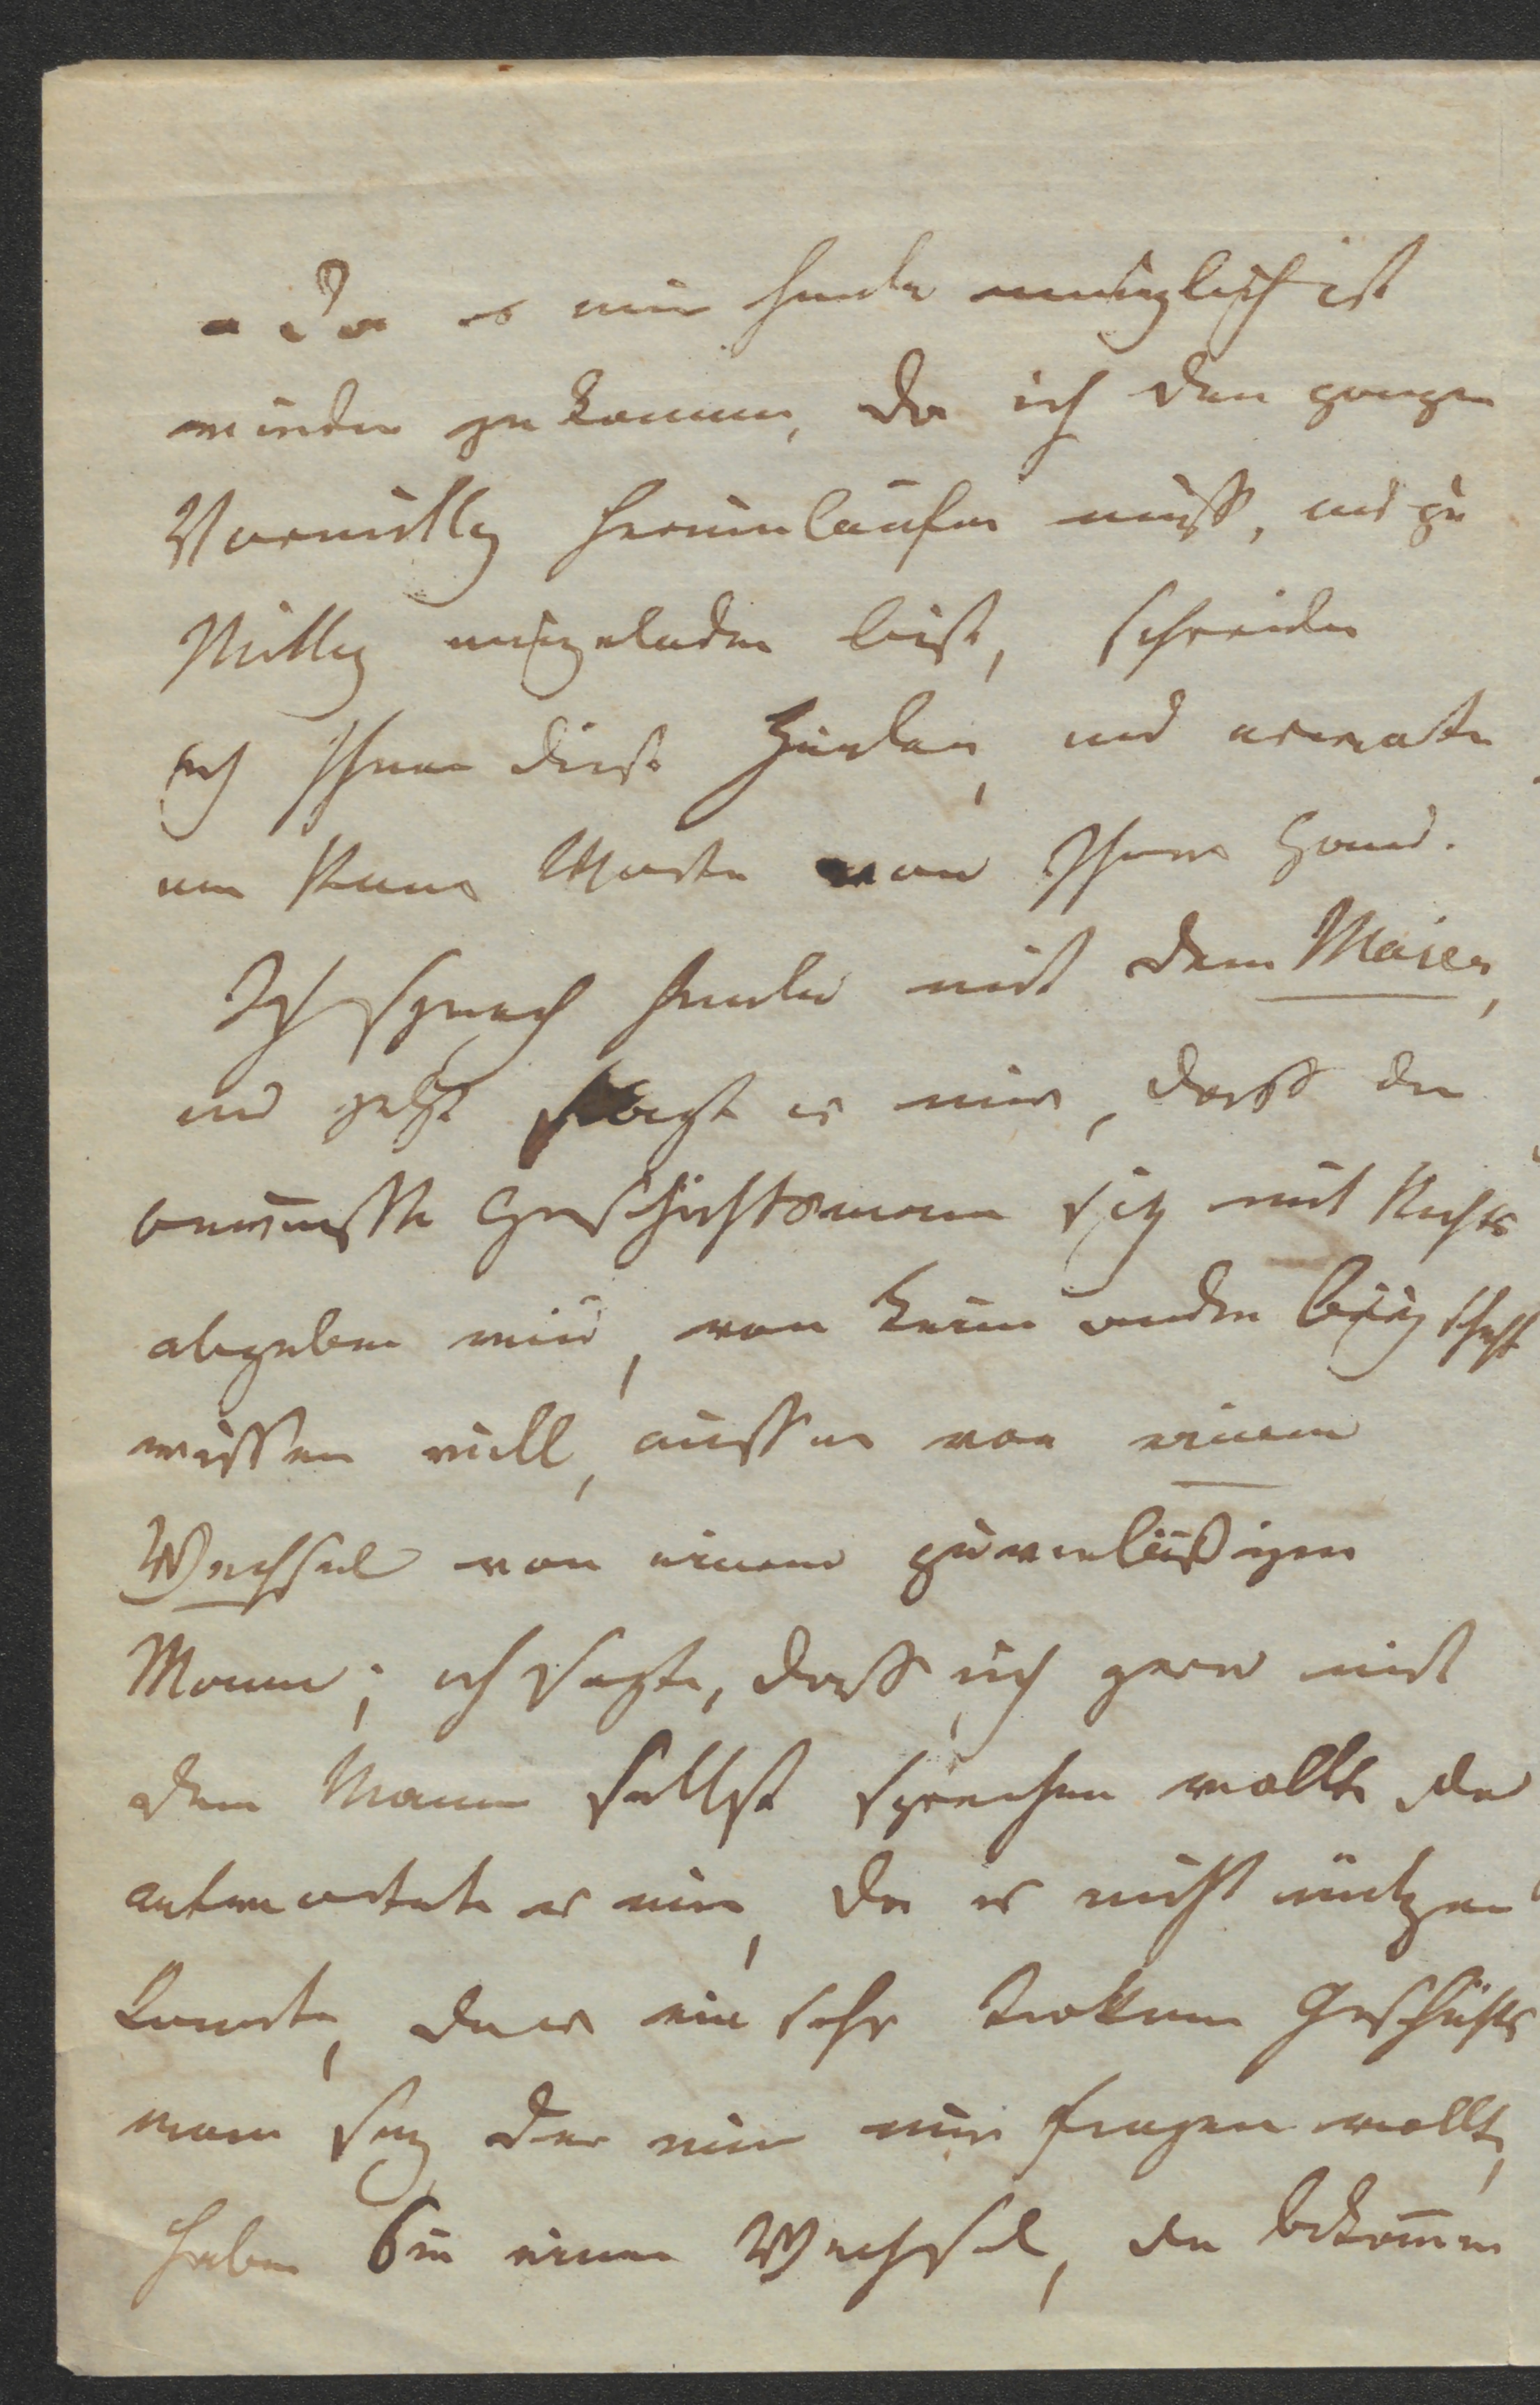 Da es mir heute unmöglich ist
wieder zu kommen, da ich den ganzen
Vormittag herumlaufen muß, und zu
Mittag eingeladen bist, schreibe
ich Ihnen diese Zeilen, und erwarte
ein Paar Worte von Ihrer Hand.
Ich sprach heute mit dem Maier,
und jetzt sagt er mir, daß der
bewußte Geschäftsmann sich mit Nichts
abgeben will, von keine andre Bürgschaft
wissen will, außer von einem
Wechsel von einem zuverläßigen
Mann; ich sagte, daß ich gern mit
dem Mann selbst sprechen wollte da
antwortete er mir, da es nicht nützen
konnte, da er ein sehr trokener Geschäfts
mann sey der mir nur fragen wollte,
haben Sie einen Wechsel, da bekom̅en